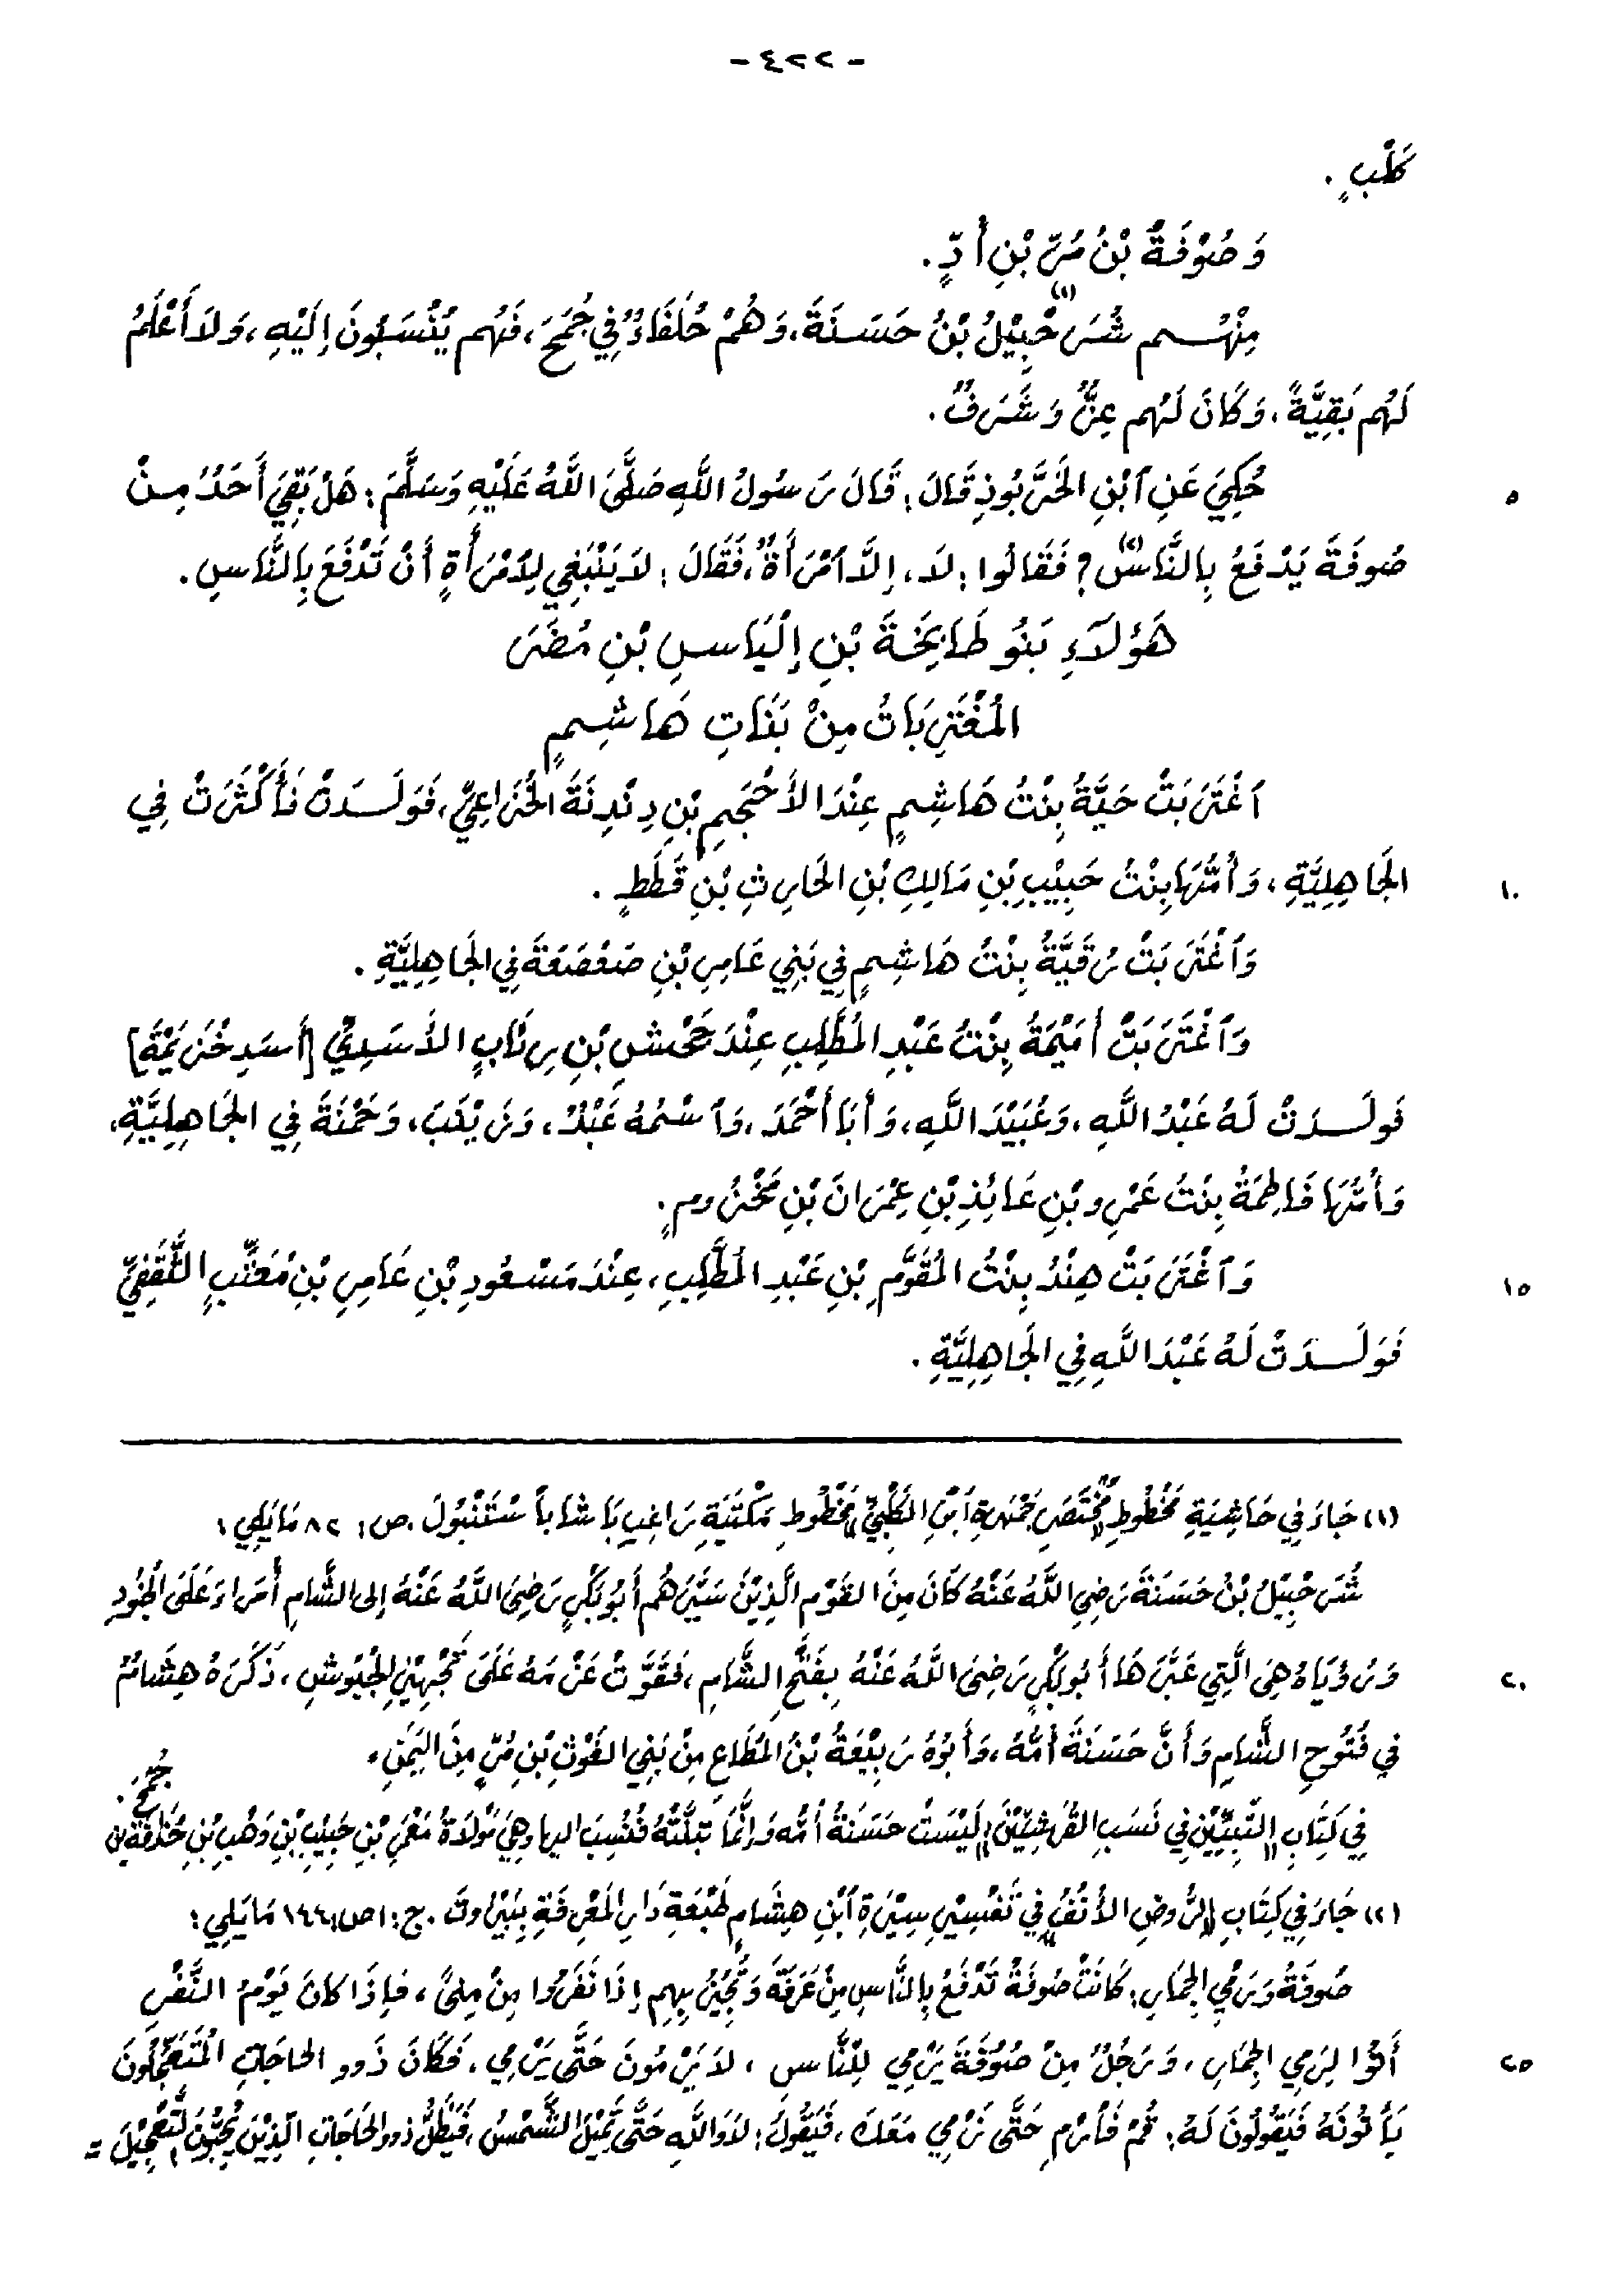 - ٤٢٢ -
كَلْبٍ .
وَصُوْفَةُ بْنُ مُرِّ بْنِ أُدٍّ .
مِنْهُم شُرَحْبِيْلُ(١) بْنُ حَسَنَةَ، وَهُمْ حُلَفَاءُ فِي جُمَحَ، فَهُم يُنْسَبُونَ إِلَيْهِ، وَلاَ أَعْلَمُ
لَهُم بَقِيَّةً، وَكَانَ لَهُم عِزٌّ وَشَرَفٌ .
٥ حُكِيَ عَنِ ٱبْنِ الخَرَّبُوذِ قَالَ: قَالَ رَسُولُ اللَّهِ صَلَّى اللَّهُ عَلَيْهِ وَسَلَّمَ: هَلْ بَقِيَ أَحَدٌ مِنْ
صُوفَةَ يَدْفَعُ بِالنَّاسِ(٢)؟ فَقَالُوا: لاَ، إِلاَّ ٱمْرَأَةٌ، فَقَالَ: لاَ يَنْبَغِي لِٱمْرَأَةٍ أَنْ تَدْفَعَ بِالنَّاسِ .
هَؤُلَاَءِ بَنُو طَابِخَةَ بْنِ إِلْيَاسِ بْنِ مُضَرَ
المُغْتَرِبَاتُ مِنْ بَنَاتِ هَاشِمٍ
ٱغْتَرَبَتْ حَيَّةُ بِنْتُ هَاشِمٍ عِنْدَ الأَحْجَمِ بْنِ دِنْدِنَةَ الخُزَاعِيِّ، فَوَلَدَتْ فَأَكْثَرَتْ فِي
١٠ الجَاهِلِيَّةِ، وَأُمُّهَا بِنْتُ حَبِيْبِ بْنِ مَالِكِ بْنِ الحَارِثِ بْنِ قَطَطٍ .
وَٱغْتَرَبَتْ رُقَيَّةُ بِنْتُ هَاشِمٍ فِي بَنِي عَامِرِ بْنِ صَعْصَعَةَ فِي الجَاهِلِيَّةِ .
وَٱغْتَرَبَتْ أُمَيْمَةُ بِنْتُ عَبْدِ المُطَّلِبِ عِنْدَ جَحْشِ بْنِ رِئَابٍ الأَسَدِيِّ [أَسَدِ خُزَيْمَةَ]
فَولَدَتْ لَهُ عَبْدُ اللَّهِ، وَعُبَيْدَ اللَّهِ، وَأَبَا أَحْمَدَ، وَٱسْمُهُ عَبْدٌ، وَزَيْنَبَ، وَحَمْنَةَ فِي الجَاهِلِيَّةِ،
وَأُمُّهَا فَاطِمَةُ بِنْتُ عَمْرِو بْنِ عَائِذِ بْنِ عِمْرَانَ بْنِ مَخْزُومٍ .
١٥ وَٱغْتَرَبَتْ هِنْدُ بِنْتُ المُقَوَّمِ بْنِ عَبْدِ المُطَّلِبِ، عِنْدَ مَسْعُودِ بْنِ عَامِرِ بْنِ مُعَتِّبٍ الثَّقَفِيِّ
فَوَلَدَتْ لَهُ عَبْدَ اللَّهِ فِي الجَاهِلِيَّةِ .
(١) جَاءَ فِي حَاشِيَةِ مَخْطُوطِ "مُخْتَصَرِ جَمْهَرَةِ ٱبْنِ الكَلْبِيِّ" مَخْطُوطِ مَكْتَبَةِ رَاغِبِ بَاشَا بِاَسْتَنْبُولَ . ص: ٨٢ مَايَلِي:
شُرَحْبِيْلُ بْنُ حَسَنَةَ رَضِيَ اللَّهُ عَنْهُ كَانَ مِنَ القَوْمِ الَّذِيْنَ سَيَّرَهُم أَبُو بَكْرٍ رَضِيَ اللَّهُ عَنْهُ إِلى الشَّامِ أُمَرَاءَ عَلَى الجُنُودِ
٢٠ وَرُؤيَاهُ هِيَ الَّتِي عَبَّرَهَا أَبُو بَكْرٍ رَضِيَ اللَّهُ عَنْهُ بِفَتْحِ الشَّامِ، فَقَوَّتْ عَزْمَهُ عَلَى تَجْهِيْزِ الجُيُوشِ، ذَكَرَهُ هِشَامٌ
فِي فُتُوحِ الشَّامِ وَأَنَّ حَسَنَةَ أُمُّهُ، وَأَبُوْهُ رَبِيْعَةُ بْنُ المُطَاعِ مِنْ بَنِي الغَوْثِ بْنِ مُرٍّ مِنَ اليَمَنِ،
فِي كِتَابِ "التَّبِيِيْن فِي نَسَبِ القُرَشِيِّيْنَ" لَيْسَتْ حَسَنَةُ أُمُّه وَإِنَّمَا تَبَنَّتْهُ فَنُسِبَ اليها وهِيَ مَوْلَاةُ مَعْمَرِ بْنِ حَبِيْبِ بْنِ وَهْبِ بْنِ حُذَافَةَ بن جُمَحَ .
(٢) جَاءَ فِي كِتَابِ "الرَّوضِ الأُنُفُ" فِي تَفْسِيْرِ سِيْرَةِ ٱبْنِ هِشَامٍ طَبْعَةِ دَارِ المَعْرِفَةِ بِبَيْرُوتَ . ج: ١ ص: ١٤٤ مَايَلِي:
صُوفَةُ وَرَمْيِ الجِمَارِ: كَانَتْ صُوفَةُ تَدْفَعُ بِالنَّاسِ مِنْ عَرَفَةَ وَتُجِيْزُ بِهِم إِذَا نَفَرُوا مِنْ مِنىً، فَإِذَا كانَ يَوْمُ النَّفْرِ
٢٥ أَتَوْا لِرَمِي الجِمَارِ، وَرَجُلٌ مِنْ صُوْفَةَ يَرْمِي لِلْنَّاسِ، لاَ يَرْمُونَ حَتَّى يَرْمِي، فَكَانَ ذَوو الحاجَاتِ المُتَعَجِّلُونَ
يَأْتُونَهُ فَيَقُولُونَ لَهُ: قُمْ فَٱرْمِ حَتَّى نَرْمِي مَعَكَ، فَيَقُولُ: لاَ وَاللَّهِ حَتَّى تَمِيْلَ الشَّمْسُ، فَيَظَلُّ ذوو الحَاجَاتِ الّذِيْنَ يُحِبُّونَ التَّعْجِيْلَ =